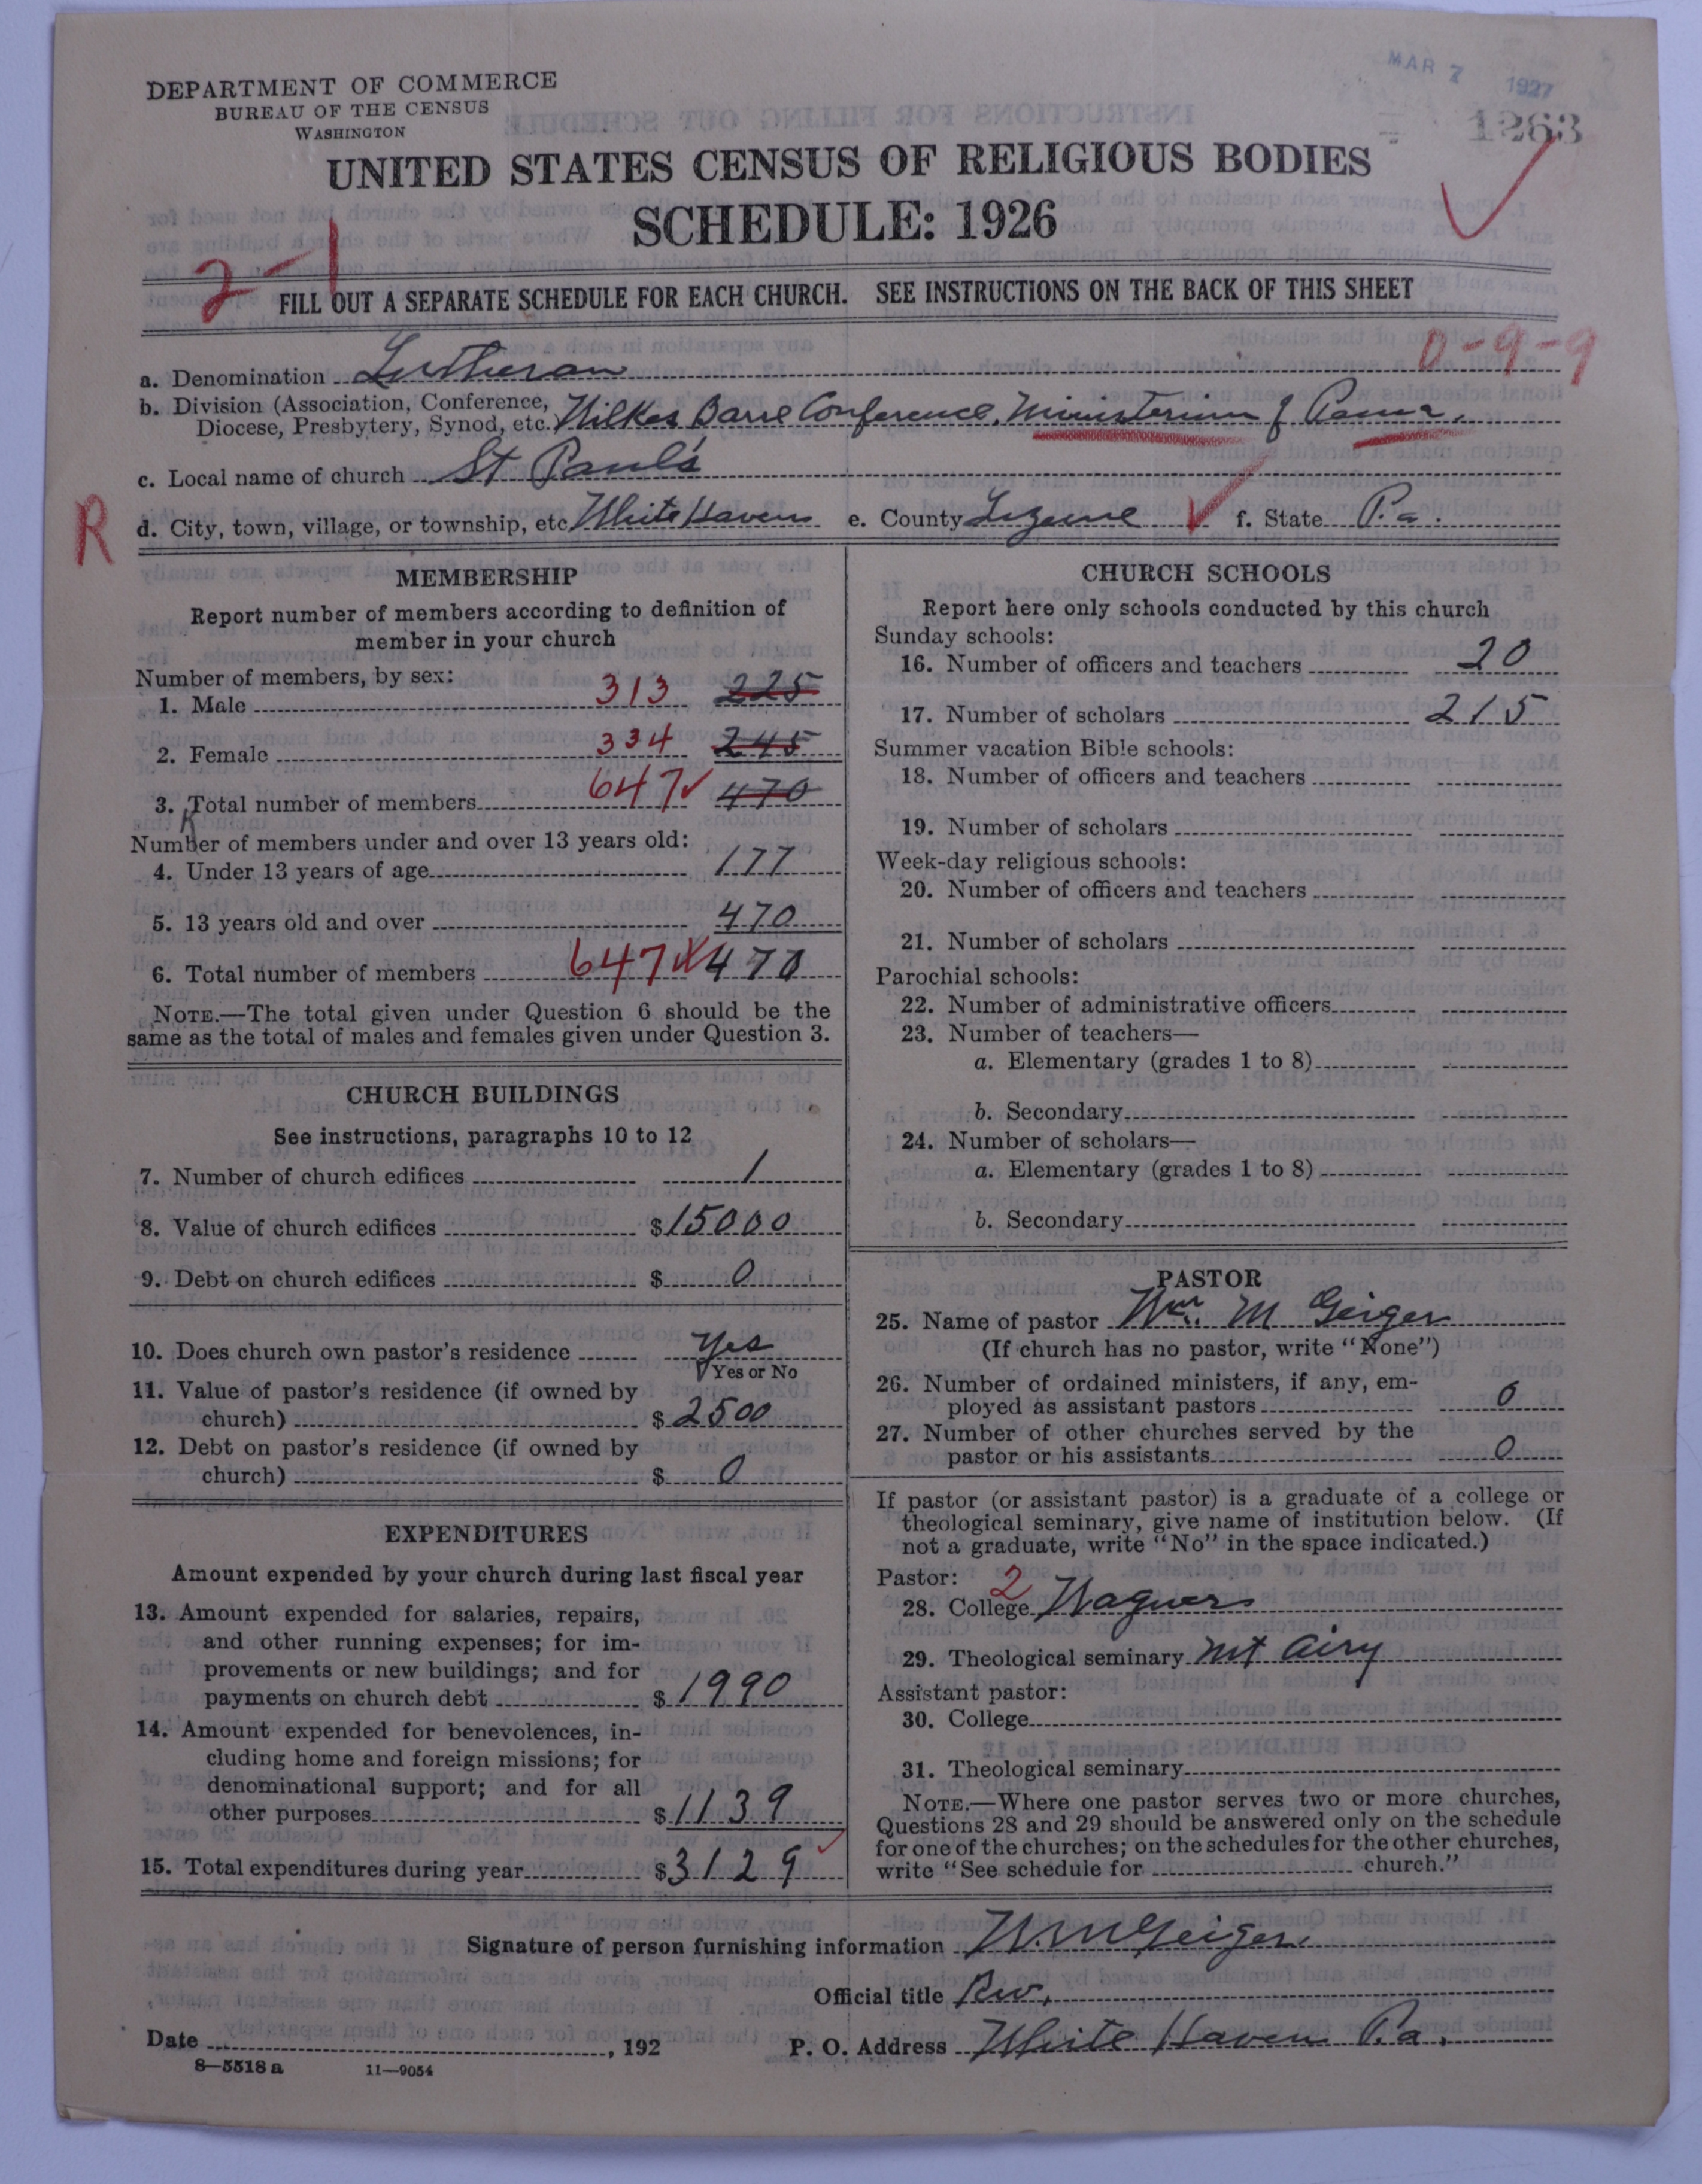 MAR 7 1927
1263
DEPARTMENT OF COMMERCE
BUREAU OF THE CENSUS
WASHINGTON
UNITED STATES CENSUS OF RELIGIOUS BODIES
SCHEDULE: 1926
2-1
FILL OUT A SEPARATE SCHEDULE FOR EACH CHURCH. SEE INSTRUCTIONS ON THE BACK OF THIS SHEET
0-9-9
a. Denomination Lutheran
b. Division (Association, Conference,
Diocese, Presbytery, Synod, etc. Wilkes Barre Conference, Ministerium of Penna.
c. Local name of church St Paul's
R
d. City, town, village, or township, etc White Haven e. County Luzerne f. State Pa.
MEMBERSHIP
Report number of members according to definition of
member in your church
Number of members, by sex:
1. Male 313 225
2. Female 334 245
3. Total number of members 647 470
Number of members under and over 13 years old:
4. Under 13 years of age 177
5. 13 years old and over 470
6. Total number of members 647 470
NOTE.—The total given under Question 6 should be the
same as the total of males and females given under Question 3.
CHURCH BUILDINGS
See instructions, paragraphs 10 to 12
7. Number of church edifices 1
8. Value of church edifices $15000
9. Debt on church edifices $ 0
10. Does church own pastor's residence Yes
Yes or No
11. Value of pastor's residence (if owned by
church) $ 2500
12. Debt on pastor's residence (if owned by
church) $ 0
EXPENDITURES
Amount expended by your church during last fiscal year
13. Amount expended for salaries, repairs,
and other running expenses; for im-
provements or new buildings; and for
payments on church debt $ 1990
14. Amount expended for benevolences, in-
cluding home and foreign missions; for
denominational support; and for all
other purposes $ 1139
15. Total expenditures during year $3129
CHURCH SCHOOLS
Report here only schools conducted by this church
Sunday schools:
16. Number of officers and teachers 20
17. Number of scholars 215
Summer vacation Bible schools:
18. Number of officers and teachers
19. Number of scholars
Week-day religious schools:
20. Number of officers and teachers
21. Number of scholars
Parochial schools:
22. Number of administrative officers
23. Number of teachers—
a. Elementary (grades 1 to 8)
b. Secondary
24. Number of scholars—
a. Elementary (grades 1 to 8)
b. Secondary
PASTOR
25. Name of pastor Wm. M Geiger
(If church has no pastor, write "None")
26. Number of ordained ministers, if any, em-
ployed as assistant pastors 0
27. Number of other churches served by the
pastor or his assistants 0
If pastor (or assistant pastor) is a graduate of a college or
theological seminary, give name of institution below. (If
not a graduate, write "No" in the space indicated.)
Pastor: 2
28. College Wagners
29. Theological seminary Mt Airy
Assistant pastor:
30. College
31. Theological seminary
NOTE.—Where one pastor serves two or more churches,
Questions 28 and 29 should be answered only on the schedule
for one of the churches; on the schedules for the other churches,
write "See schedule for church."
Signature of person furnishing information W.M Geiger
Official title Rev.
Date , 192 P. O. Address White Haven Pa.
8—5518 a 11—9054